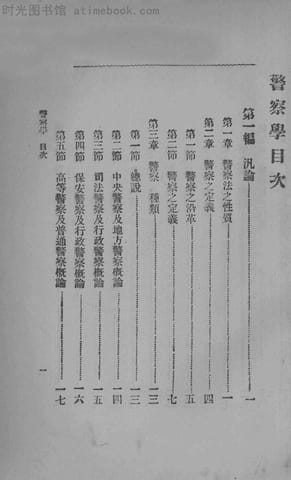 时光图书馆 atimebook.com
警察學目次
第一編 汎論 一
第一章 警察法之性質 一
第二章 警察之定義 四
第一節 警察之沿革 五
第二節 警察之定義 七
第三章 警察 種類 一三
第一節 總說 一三
第二節 中央警察及地方警察概論 一四
第三節 司法警察及行政警察概論 一五
第四節 保安警察及行政警察概論 一六
第五節 高等警察及普通警察概論 一七
警察學 目次
一